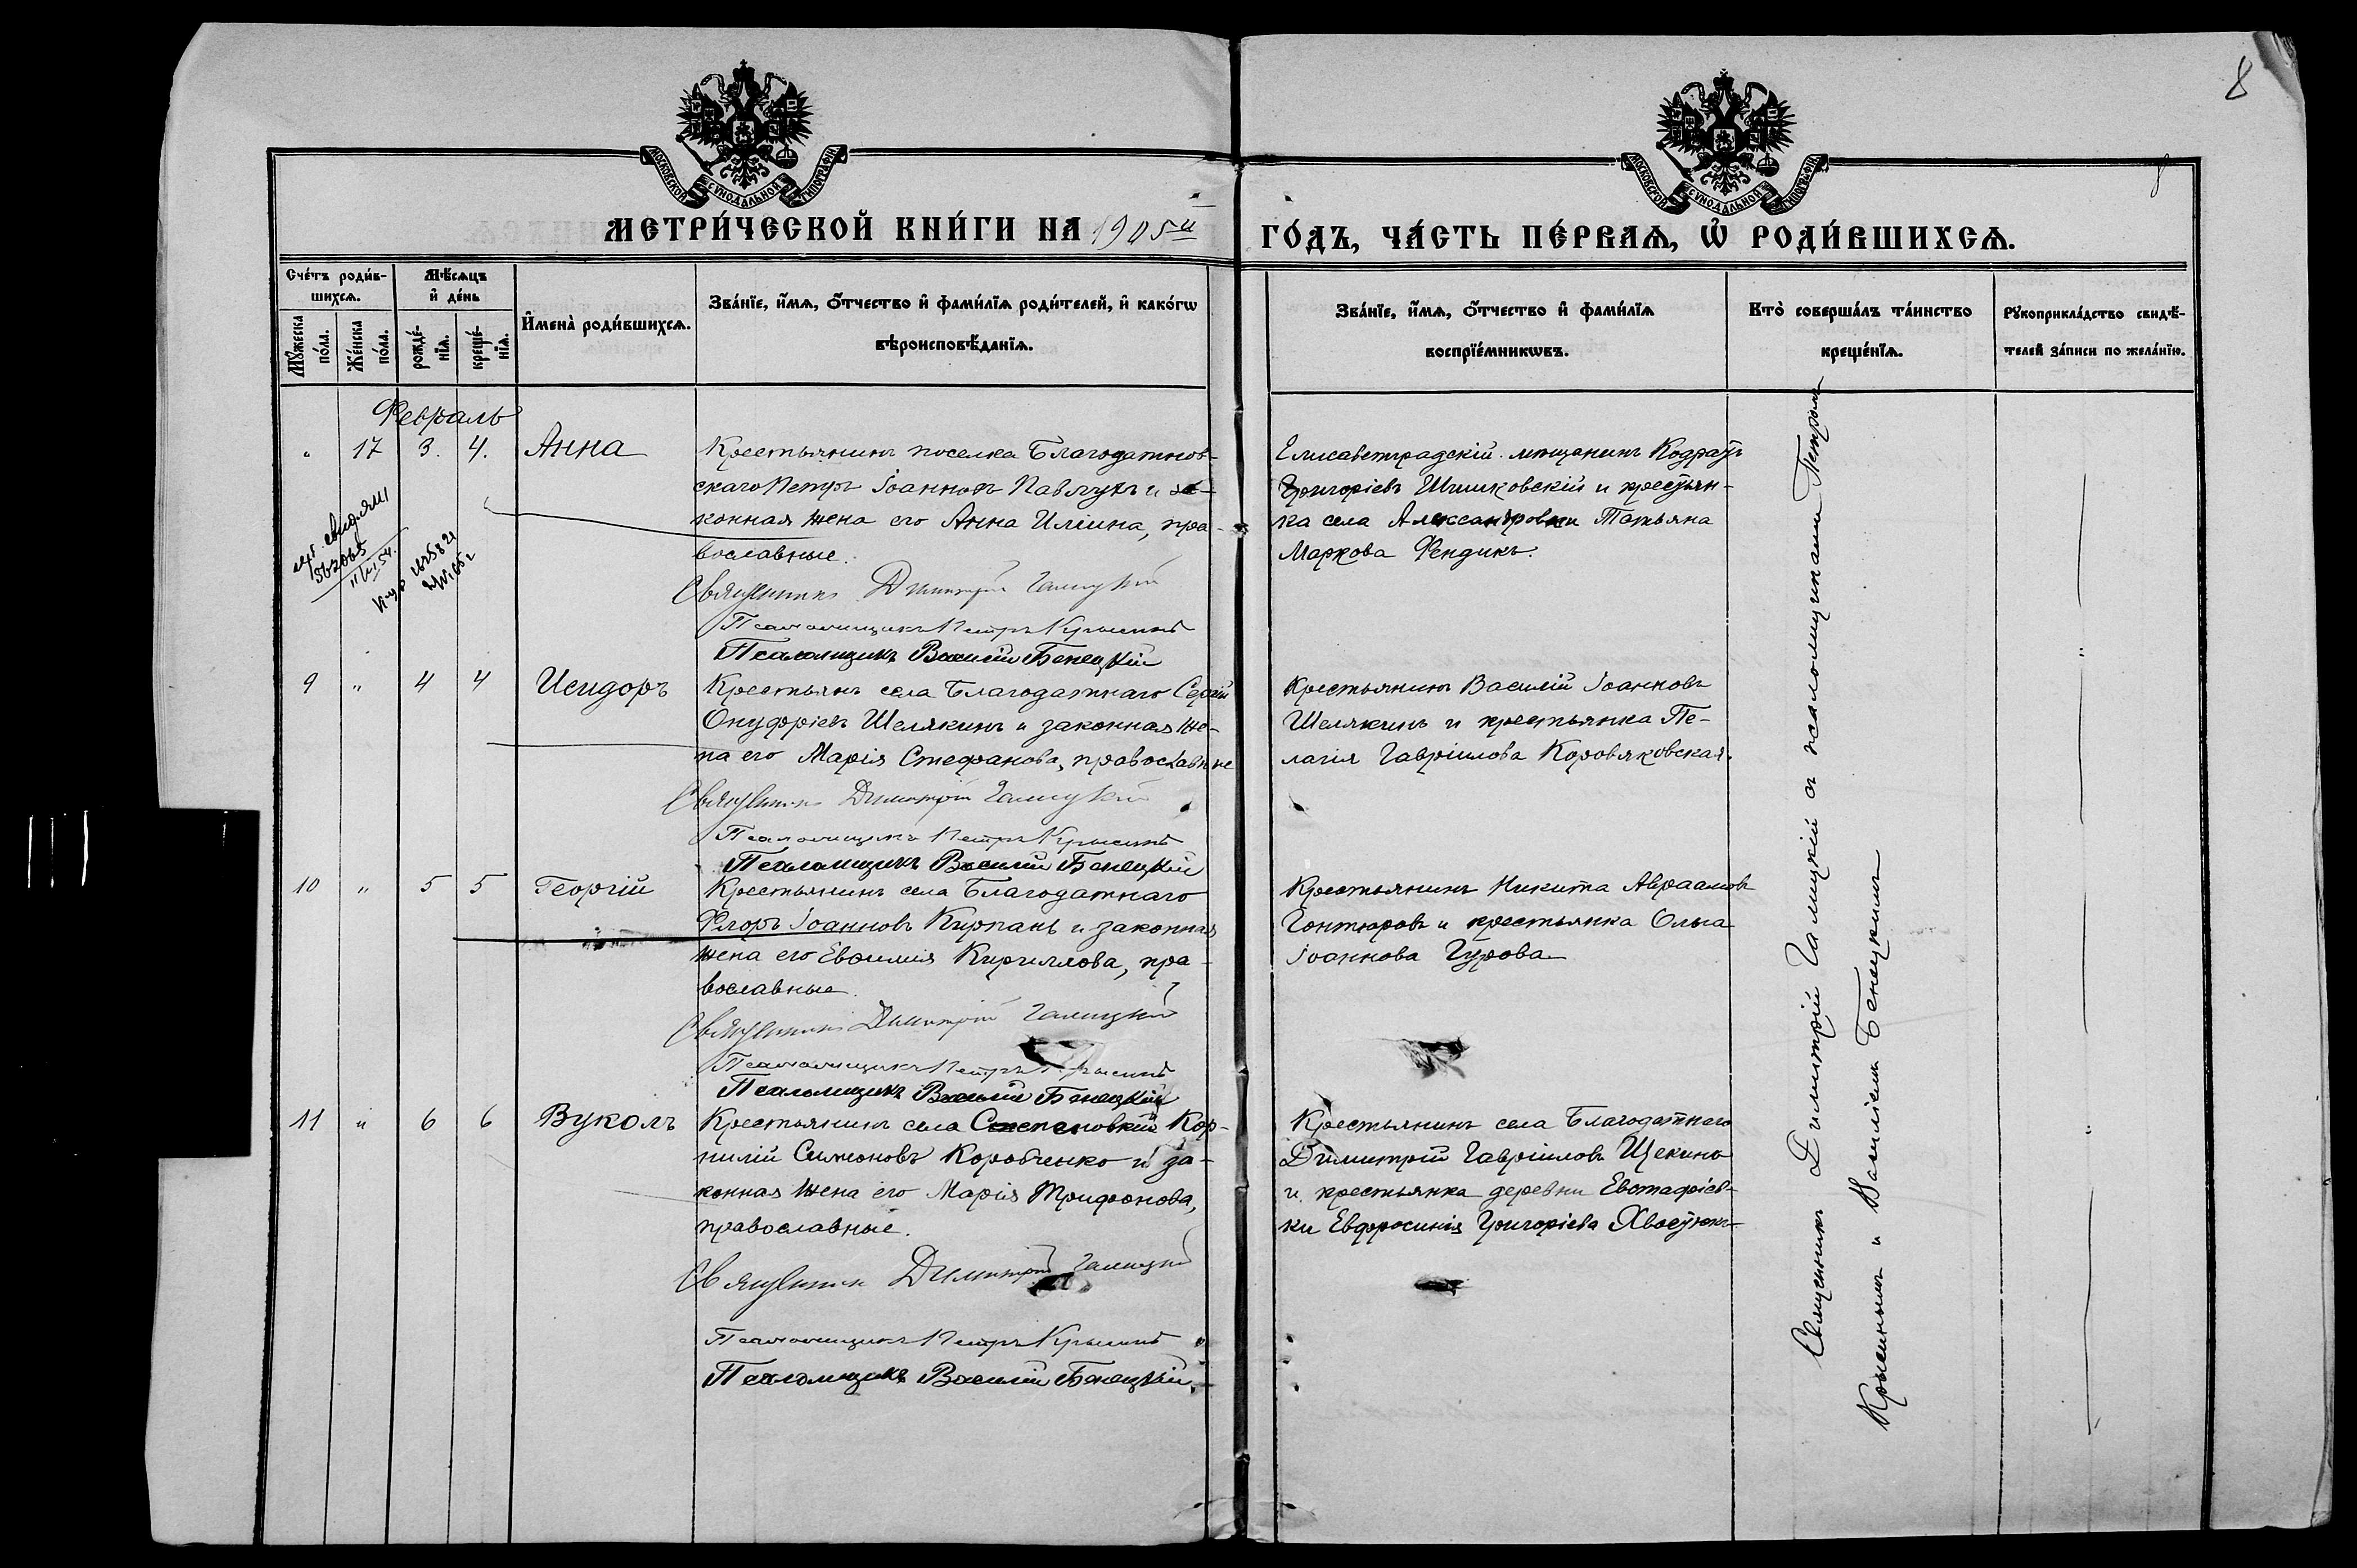 8
8
МОСКОВСКОЙ СѴНОДАЛЬНОЙ ТИПОГРАФІИ
МОСКОВСКОЙ СѴНОДАЛЬНОЙ ТИПОГРАФІИ
МЕТРИ́ЧЕСКОЙ КНИ́ГИ НА 1905й ГО́ДЪ, ЧА́СТЬ ПЕ́РВАѦ, Ѡ҆ РОДИ́ВШИХСѦ.
Сче́тъ роди́в-
шихсѧ.
Мꙋ́жеска по́ла.
Же́нска по́ла.
Мѣ́сѧцъ
и҆ де́нь
рожде́-
нїѧ.
креще́-
нїѧ.
И҆мена̀ роди́вшихсѧ.
Зва́нїе, и҆́мѧ, ѻ҆́тчество и҆ фами́лїѧ роди́телей, и҆ како́гѡ
вѣроисповѣ́данїѧ.
Зва́нїе, и҆́мѧ, ѻ҆́тчество и҆ фами́лїѧ
воспрїе́мникѡвъ.
Кто̀ соверша́лъ та́инство
креще́нїѧ.
Рꙋкоприкла́дство свидѣ́-
телей за́писи по жела́нїю.
Февраль
" 17 3. 4. Анна
Крестьянинъ поселка Благодатнов-
скаго Петръ Іоанновъ Павлукъ и за-
конная жена его Анна Иліина, пра-
вославные.
Священникъ Димитрій Галицкій
Псаломщикъ Петръ Крысинъ
Псаломщикъ Василій Бенецкій
Елисаветградскій мѣщанинъ Кодратъ
Григоріевъ Шишковскій и крестьян-
ка села Александровки Татьяна
Маркова Фендикъ.
562065
11/VI 54.
9 " 4 4 Исидоръ
Крестьянъ села Благодатнаго Сергій
Онуфріевъ Шелякинъ и законная же-
на его Марія Стефанова, православные
Священникъ Димитрій Галицкій
Псаломщикъ Петръ Крысинъ
Псаломщикъ Василій Бенецкій
Крестьянинъ Василій Іоанновъ
Шелякинъ и крестьянка Пе-
лагія Гавріилова Коровяковская.
10 " 5 5 Георгій
Крестьянинъ села Благодатнаго
Флоръ Іоанновъ Кирпань и законная
жена его Евѳимія Кириллова, пра-
вославные.
Священникъ Димитрій Галицкій
Псаломщикъ Петръ Крысинъ
Псаломщикъ Василій Бенецкій
Крестьянинъ Никита Авраамовъ
Гонтюровъ и крестьянка Ольга
Іоаннова Гурова
11 " 6 6 Вуколъ
Крестьянинъ села Степановки Кор-
нилій Симоновъ Коробченко и за-
конная жена его Марія Трифонова,
православные.
Священникъ Димитрій Галицкій
Псаломщикъ Петръ Крысинъ
Псаломщикъ Василій Бенецкій
Крестьянинъ села Благодатнаго
Димитрій Гавріиловъ Щекинъ
и крестьянка деревни Евстафіев-
ки Евфросинія Григоріева Хвостюкъ
Священникъ Димитрій Галицкій съ псаломщиками Петромъ
Крысинымъ и Василіемъ Бенецкимъ